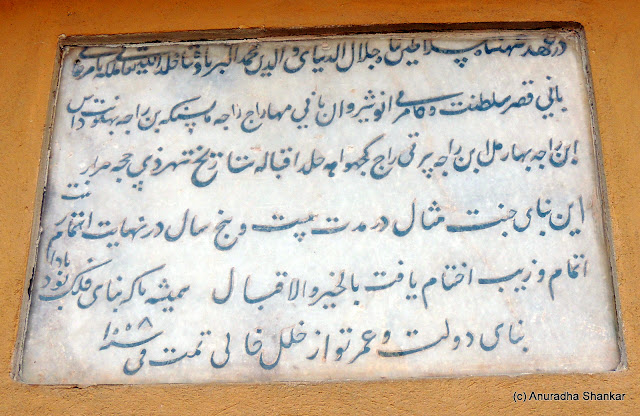 در عهد شهنشاه سلاطین پناه جلال الدنیا و الدین محمد اکبر بادشاه خلد الله
بانی قصر سلطنت و کامرانی انوشیروان ثانی مهاراج راجه مانسنگه بن راجه بهگونت داس
ابن راجه بهارمل ابن راجه پرتهی راج کچهواهه خلد اقباله تاریخ شهر ذی حجه
این بنای جنت مثال در مدت بیست و پنج سال در نهایت اتمام
اتمام و زیب اختتام یافت بالخیر والاقبال همیشه تا که بنای فلک بود بادا
بنای دولت و عمر تو از خلل خالی تمت فی سنه ۱۰۰۸
(c) Anuradha Shankar